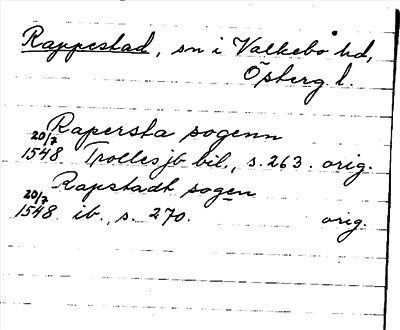 Rappestad, sn i Valkebo hd,
Östergl.
Rapersta sogenn
20/7 1548 Trolles jb bil., s. 263. orig.
Rapstadt sogen
20/7 1548 ib., s. 270. orig.